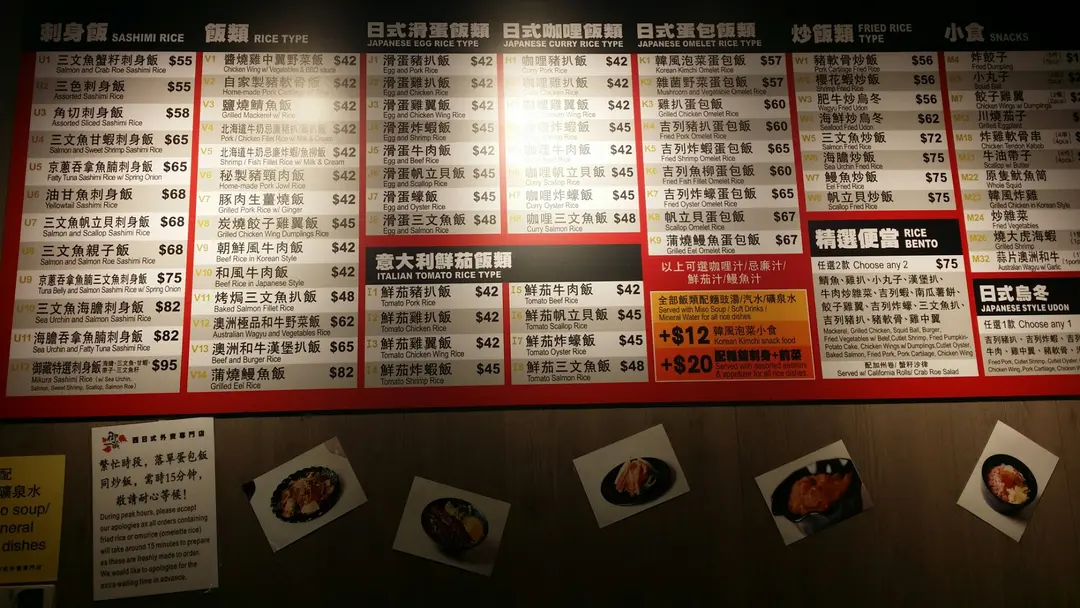 刺身飯 SASHIMI RICE
U1 三文魚蟹籽刺身飯 $55
Salmon and Crab Roe Sashimi Rice
U2 三色刺身飯 $55
Assorted Sashimi Rice
U3 角切刺身飯 $58
Assorted Sliced Sashimi Rice
U4 三文魚甘蝦刺身飯 $65
Salmon and Sweet Shrimp Sashimi Rice
U5 京蔥吞拿魚腩刺身飯 $65
Fatty Tuna Sashimi Rice w/ Spring Onion
U6 油甘魚刺身飯 $68
Yellowtail Sashimi Rice
U7 三文魚帆立貝刺身飯 $68
Salmon and Scallop Sashimi Rice
U8 三文魚親子飯 $68
Salmon and Salmon Roe Sashimi Rice
U9 京蔥吞拿魚腩三文魚刺身飯 $75
Tuna Belly and Salmon Sashimi Rice w/ Spring Onion
U10 三文魚海膽刺身飯 $82
Sea Urchin and Salmon Sashimi Rice
U11 海膽吞拿魚腩刺身飯 $82
Sea Urchin and Fatty Tuna Sashimi Rice
御藏特選刺身飯 $95
Mikura Sashimi Rice (w/ Sea Urchin,
Salmon, Sweet Shrimp, Scallop, Salmon Roe)
飯類 RICE TYPE
V1 醬燒雞中翼野菜飯 $42
Chicken Wing w/ Vegetables & BBQ sauce
V2 自家製豬軟骨飯 $42
V3 鹽燒鯖魚飯 $42
Grilled Mackerel w/ Rice
V4 $42
V5 北海道牛奶忌廉炸蝦/魚柳飯 $42
Shrimp / Fish Fillet Rice w/ Milk & Cream
V6 秘製豬頸肉飯 $42
Home-made Pork Jowl Rice
V7 豚肉生薑燒飯 $42
Grilled Pork Rice w/ Ginger
V8 炭燒餃子雞翼飯 $45
Grilled Chicken Wing Dumplings Rice
V9 朝鮮風牛肉飯 $42
Beef Rice in Korean Style
V10 和風牛肉飯 $42
Beef Rice in Japanese Style
V11 烤焗三文魚扒飯 $48
Baked Salmon Fillet Rice
V12 澳洲極品和牛野菜飯 $62
Australian Wagyu and Vegetables Rice
V13 澳洲和牛漢堡扒飯 $65
Beef and Burger Rice
V14 蒲燒鰻魚飯 $82
Grilled Eel Rice
日式滑蛋飯類
JAPANESE EGG RICE TYPE
J1 滑蛋豬扒飯 $42
Egg and Pork Rice
J2 滑蛋雞扒飯 $42
Egg and Chicken Rice
J3 滑蛋雞翼飯 $42
Egg and Chicken Wing Rice
J4 滑蛋炸蝦飯 $45
Egg and Shrimp Rice
J5 滑蛋牛肉飯 $42
Egg and Beef Rice
J6 滑蛋帆立貝飯 $45
Egg and Scallop Rice
J7 滑蛋蠔飯 $45
Egg and Oyster Rice
J8 滑蛋三文魚飯 $48
Egg and Salmon Rice
日式咖哩飯類
JAPANESE CURRY RICE TYPE
H1 咖哩豬扒飯 $42
Curry Pork Rice
咖哩雞扒飯 $42
咖哩雞翼飯 $42
咖哩炸蝦飯 $45
咖哩牛肉飯 $42
咖哩帆立貝飯 $45
Curry Scallop Rice
H7 咖哩炸蠔飯 $45
Curry Oyster Rice
H8 咖哩三文魚飯 $48
Curry Salmon Rice
意大利鮮茄飯類
ITALIAN TOMATO RICE TYPE
I1 鮮茄豬扒飯 $42
Tomato Pork Rice
I2 鮮茄雞扒飯 $42
Tomato Chicken Rice
I3 鮮茄雞翼飯 $42
Tomato Chicken Wing Rice
I4 鮮茄炸蝦飯 $45
Tomato Shrimp Rice
I5 鮮茄牛肉飯 $42
Tomato Beef Rice
I6 鮮茄帆立貝飯 $45
Tomato Scallop Rice
I7 鮮茄炸蠔飯 $45
Tomato Oyster Rice
I8 鮮茄三文魚飯 $48
Tomato Salmon Rice
日式蛋包飯類
JAPANESE OMELET RICE TYPE
K1 韓風泡菜蛋包飯 $57
Korean Kimchi Omelet Rice
K2 雜菌野菜蛋包飯 $57
Mushrooms and Vegetable Omelet Rice
K3 雞扒蛋包飯 $60
Grilled Chicken Omelet Rice
K4 吉列豬扒蛋包飯 $60
Fried Pork Omelet Rice
K5 吉列炸蝦蛋包飯 $65
Fried Shrimp Omelet Rice
K6 吉列魚柳蛋包飯 $60
Fried Fish Fillet Omelet Rice
K7 吉列炸蠔蛋包飯 $65
Fried Oyster Omelet Rice
K8 帆立貝蛋包飯 $67
Scallop Omelet Rice
K9 蒲燒鰻魚蛋包飯 $67
Grilled Eel Omelet Rice
以上可選咖哩汁/忌廉汁/
鮮茄汁/鰻魚汁
全部飯類配麵豉湯/汽水/礦泉水
Served with Miso Soup / Soft Drinks /
Mineral Water for all rice dishes
+$12 韓風泡菜小食
Korean Kimchi snack food
+$20 配雜錦刺身+前菜
Served with assorted sashimi
& appetizer for all rice dishes
炒飯類 FRIED RICE TYPE
W1 豬軟骨炒飯 $56
Pork Cartilage Fried Rice
W2 櫻花蝦炒飯 $56
Shrimp Fried Rice
W3 肥牛炒烏冬 $56
Wagyu Fried Udon
W4 海鮮炒烏冬 $62
Seafood Fried Udon
W5 三文魚炒飯 $72
Salmon Fried Rice
W6 海膽炒飯 $75
Sea Urchin Fried Rice
W7 鰻魚炒飯 $75
Eel Fried Rice
W8 帆立貝炒飯 $75
Scallop Fried Rice
精選便當 RICE BENTO
任選2款 Choose any 2 $75
鯖魚、雞扒、小丸子、漢堡扒、
牛肉炒雜菜、吉列蝦、南瓜薯餅、
餃子雞翼、吉列炸蠔、三文魚扒、
吉列豬扒、豬軟骨、雞中翼
Mackerel, Grilled Chicken, Squid Ball, Burger,
Fried Vegetables w/ Beef, Cutlet Shrimp, Fried Pumpkin-
Potato Cake, Chicken Wings w/ Dumplings, Cutlet Oyster,
Baked Salmon, Fried Pork, Pork Cartilage, Chicken Wing
配加州卷/蟹籽沙律
Served w/ California Rolls/ Crab Roe Salad
小食 SNACKS
M4 炸餃子
Fried Dumpling
小丸子
Squid Ball
M7 餃子雞翼
Chicken Wings w/ Dumplings
川燒茄子
Grilled Eggplant
M18 炸雞軟骨串
Chicken Tendon Kebab
牛油帶子
M22 原隻魷魚筒
Whole Squid
M23 韓風炸雞
Fried Chicken in Korean Style
M24 炒雜菜
M26 燒大虎海蝦
Grilled Shrimp
M32 蒜片澳洲和牛
Australian Wagyu w/ Garlic
日式烏冬
JAPANESE STYLE UDON
任選1款 Choose any 1
吉列豬扒、吉列炸蝦、吉列炸
牛肉、雞中翼、豬軟骨、
西日式外賣專門店
繁忙時段，落單蛋包飯
同炒飯，需時15分鐘，
敬請耐心等候！
During peak hours, please accept
our apologies as all orders containing
fried rice or omurice (omelette rice)
will take around 15 minutes to prepare
as these are freshly made to order.
We would like to apologise for the
extra waiting time in advance.
配
礦泉水
o soup/
neral
dishes